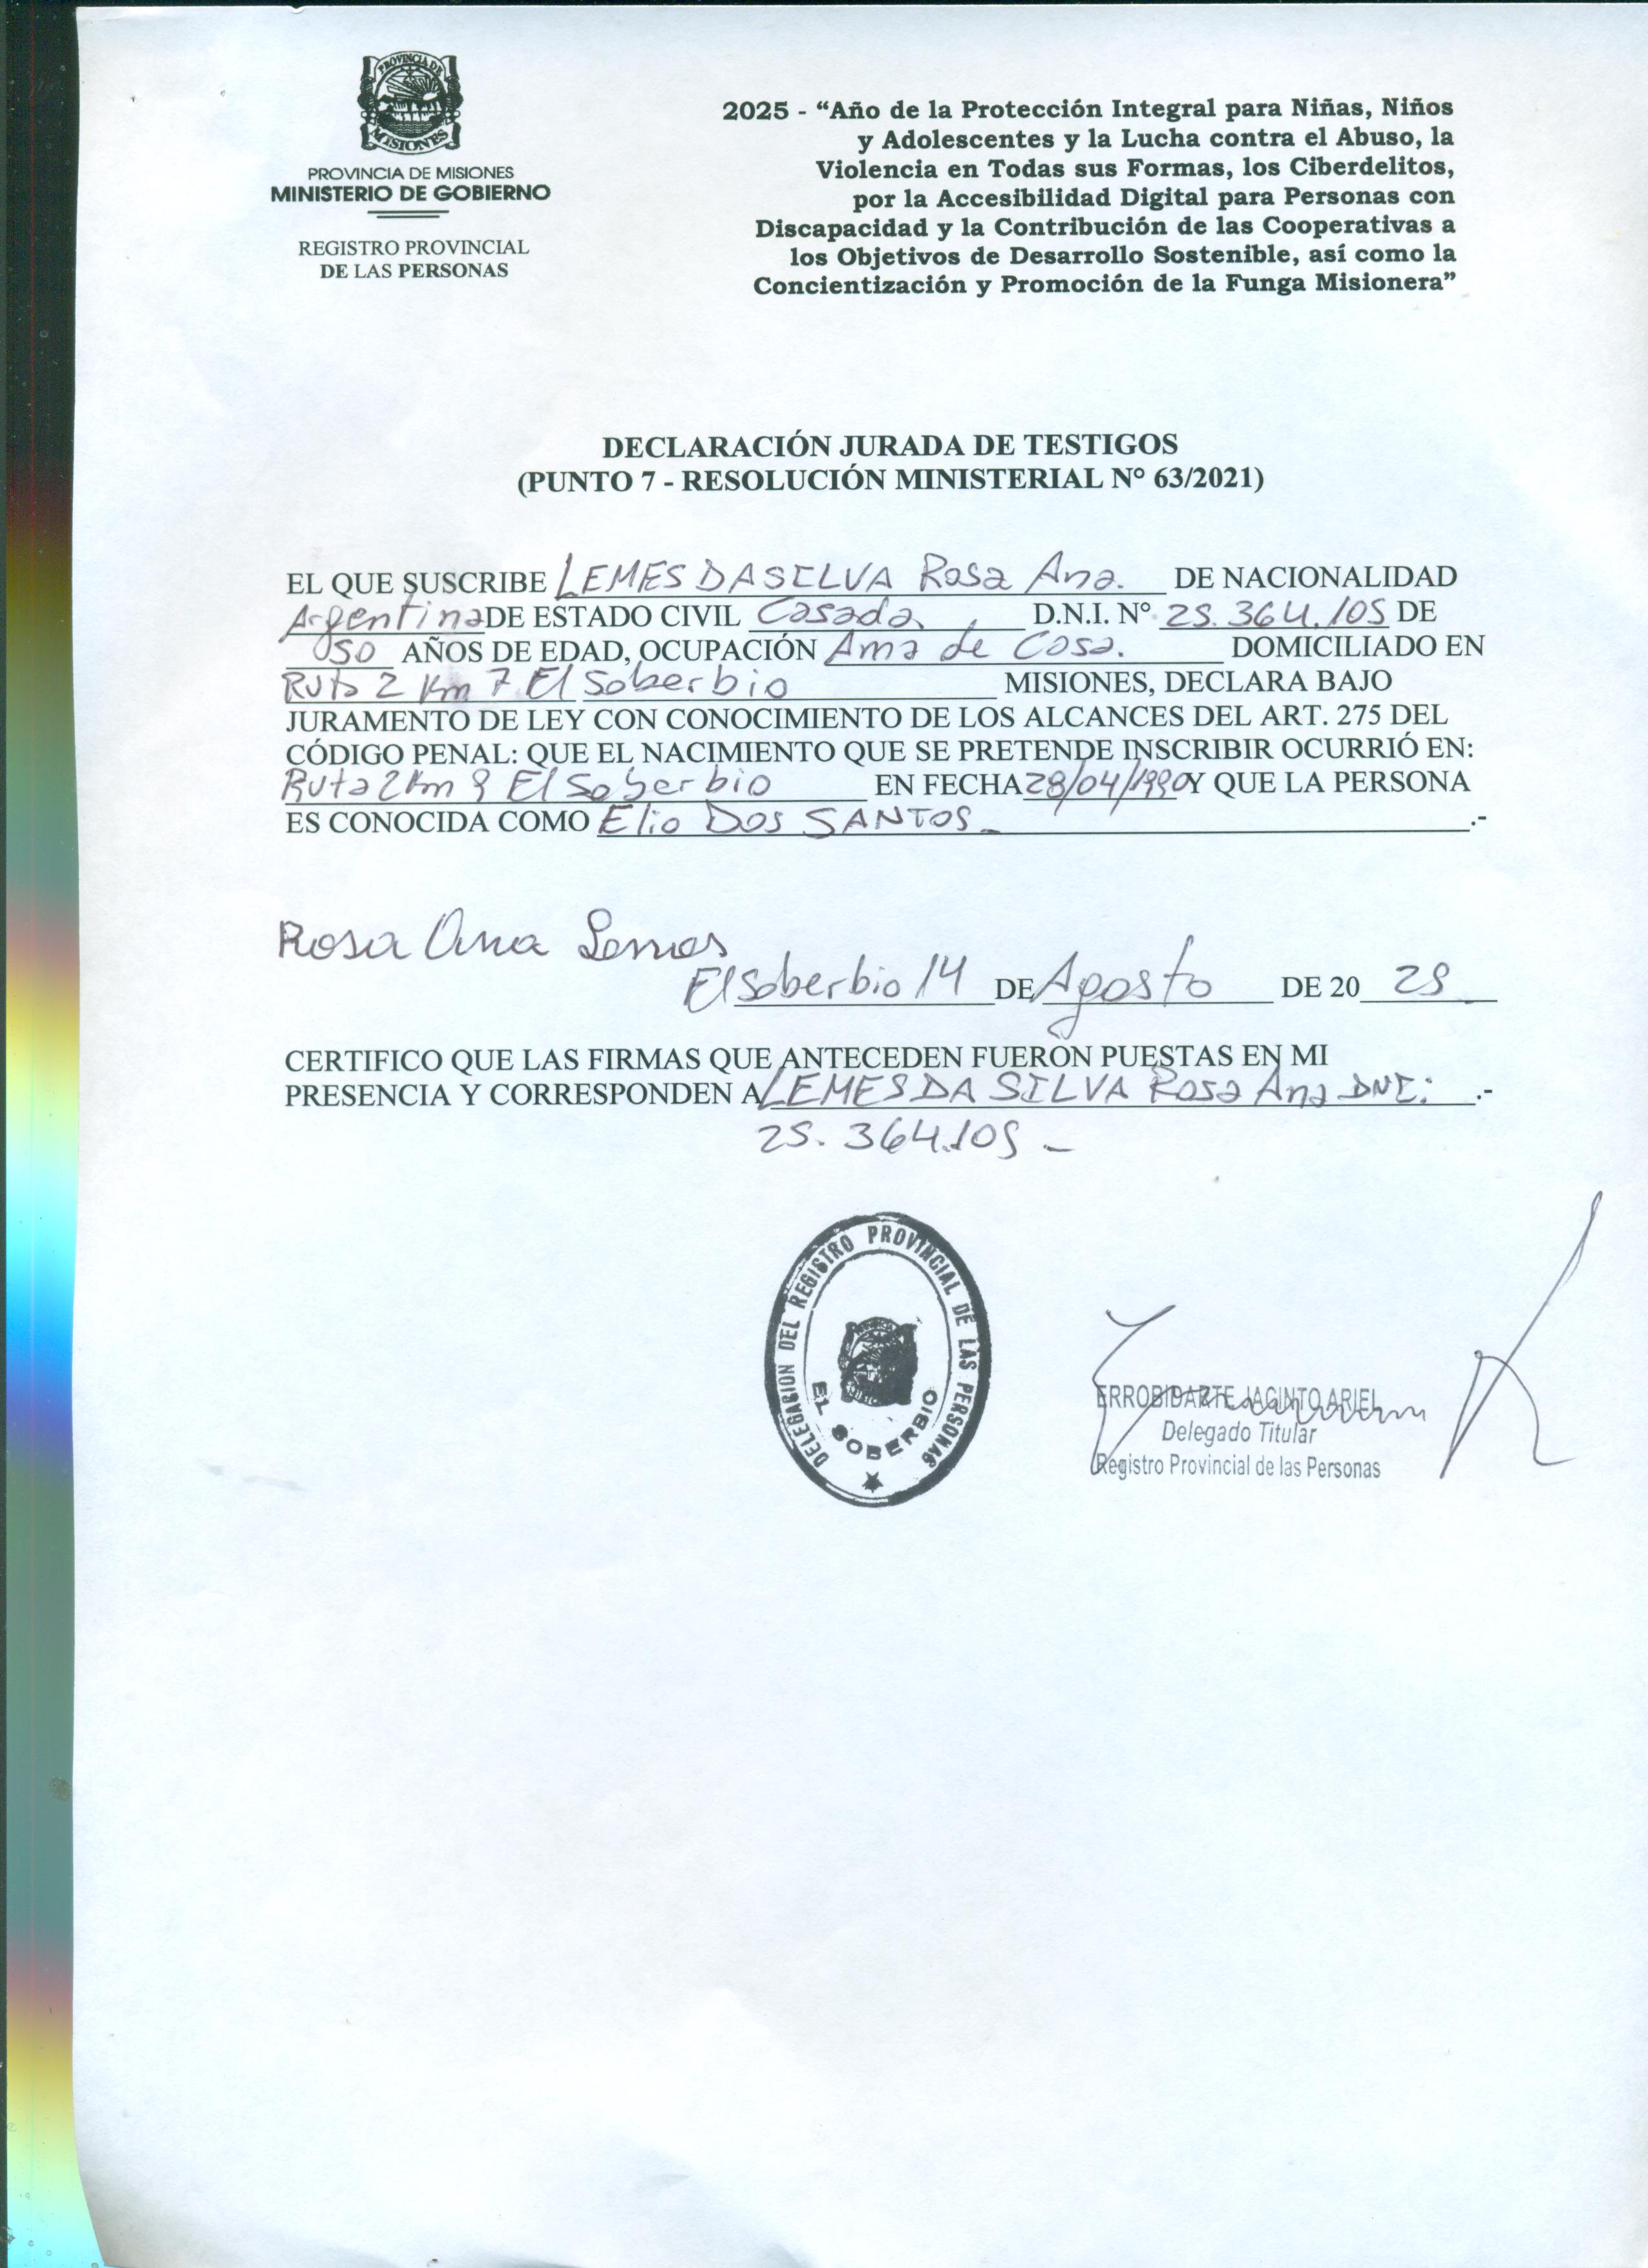 PROVINCIA DE
MISIONES
PROVINCIA DE MISIONES
MINISTERIO DE GOBIERNO
REGISTRO PROVINCIAL
DE LAS PERSONAS
2025 - “Año de la Protección Integral para Niñas, Niños
y Adolescentes y la Lucha contra el Abuso, la
Violencia en Todas sus Formas, los Ciberdelitos,
por la Accesibilidad Digital para Personas con
Discapacidad y la Contribución de las Cooperativas a
los Objetivos de Desarrollo Sostenible, así como la
Concientización y Promoción de la Funga Misionera”
DECLARACIÓN JURADA DE TESTIGOS
(PUNTO 7 - RESOLUCIÓN MINISTERIAL N° 63/2021)
EL QUE SUSCRIBE LEMES DASILVA Rosa Ana. DE NACIONALIDAD
Argentina DE ESTADO CIVIL Casada. D.N.I. N° 25.364.105 DE
50 AÑOS DE EDAD, OCUPACIÓN Ama de Casa. DOMICILIADO EN
Ruta 2 Km 7 El Soberbio MISIONES, DECLARA BAJO
JURAMENTO DE LEY CON CONOCIMIENTO DE LOS ALCANCES DEL ART. 275 DEL
CÓDIGO PENAL: QUE EL NACIMIENTO QUE SE PRETENDE INSCRIBIR OCURRIÓ EN:
Ruta 2 Km El Soberbio EN FECHA 28/04/1990 Y QUE LA PERSONA
ES CONOCIDA COMO Elio DOS SANTOS_ .-
Rosa Ana Lemes
El Soberbio 14 DE Agosto DE 20 25
CERTIFICO QUE LAS FIRMAS QUE ANTECEDEN FUERON PUESTAS EN MI
PRESENCIA Y CORRESPONDEN A LEMES DA SILVA Rosa Ana DNI: .-
25.364.105 _
DELEGACION DEL REGISTRO PROVINCIAL DE LAS PERSONAS
EL SOBERBIO
ERROBIDARTE JACINTO ARIEL
Delegado Titular
Registro Provincial de las Personas